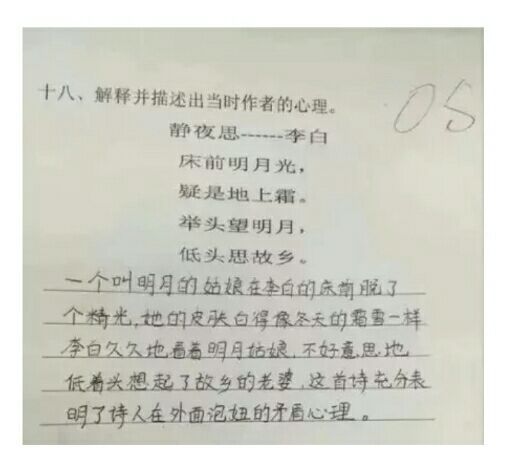 十八、解释并描述出当时作者的心理。
静夜思------李白
床前明月光，
疑是地上霜。
举头望明月，
低头思故乡。
一个叫明月的姑娘在李白的床前脱了
个精光，她的皮肤白得像冬天的霜雪一样
李白久久地看着明月姑娘，不好意思地
低着头想起了故乡的老婆，这首诗充分表
明了诗人在外面泡妞的矛盾心理。